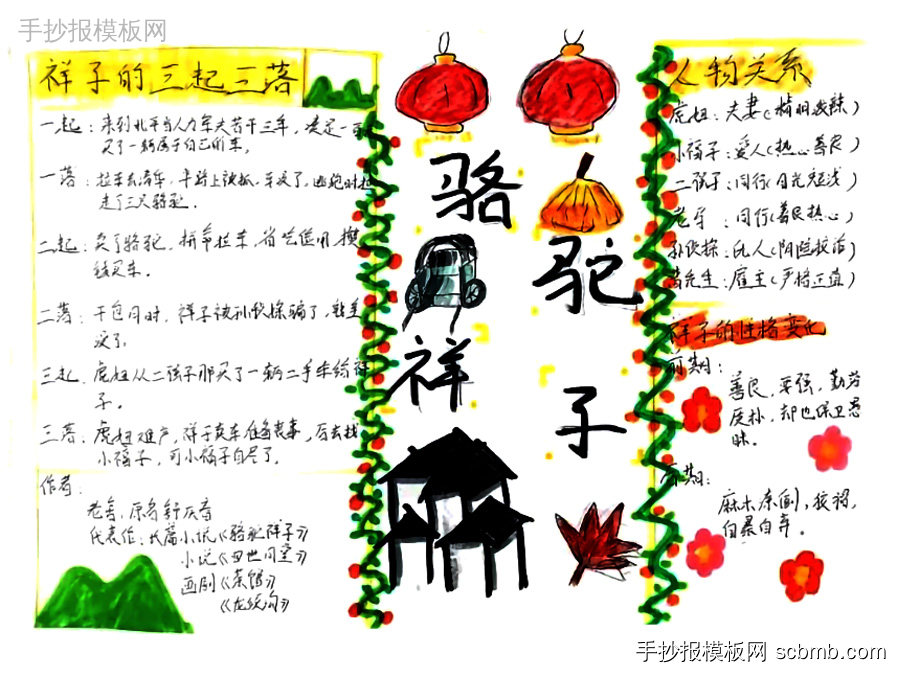 手抄报模板网
祥子的三起三落
一起：来到北平当人力车夫苦干三年，凑足一百
买了一辆属于自己的车。
一落：拉车去清华，半路上被抓，车没了，逃跑时
走了三只骆驼。
二起：卖了骆驼，拼命拉车，省吃俭用，攒
钱买车。
二落：干包月时，祥子被孙侦探骗了，
没了。
三起，虎妞从二强子那买了一辆二手车给祥
子。
三落：虎妞难产，祥子卖车
小福子，可小福子自尽了。
作者：
老舍，原名舒庆春
代表作：长篇小说《骆驼祥子》
小说《四世同堂》
画剧《茶馆》
《龙须沟》
骆
驼
祥
子
人物关系
虎妞：夫妻(精明泼辣)
小福子：爱人(热心善良)
二强子：同行(目光短浅)
老马：同行(善良热心)
孙侦探：仇人(阴险狡诈)
曹先生：雇主(严格正直)
祥子的性格变化
前期：
善良，要强，勤劳
质朴，却也
后期：
麻木，潦倒，狡猾，
自暴自弃。
手抄报模板网 scbmb.com